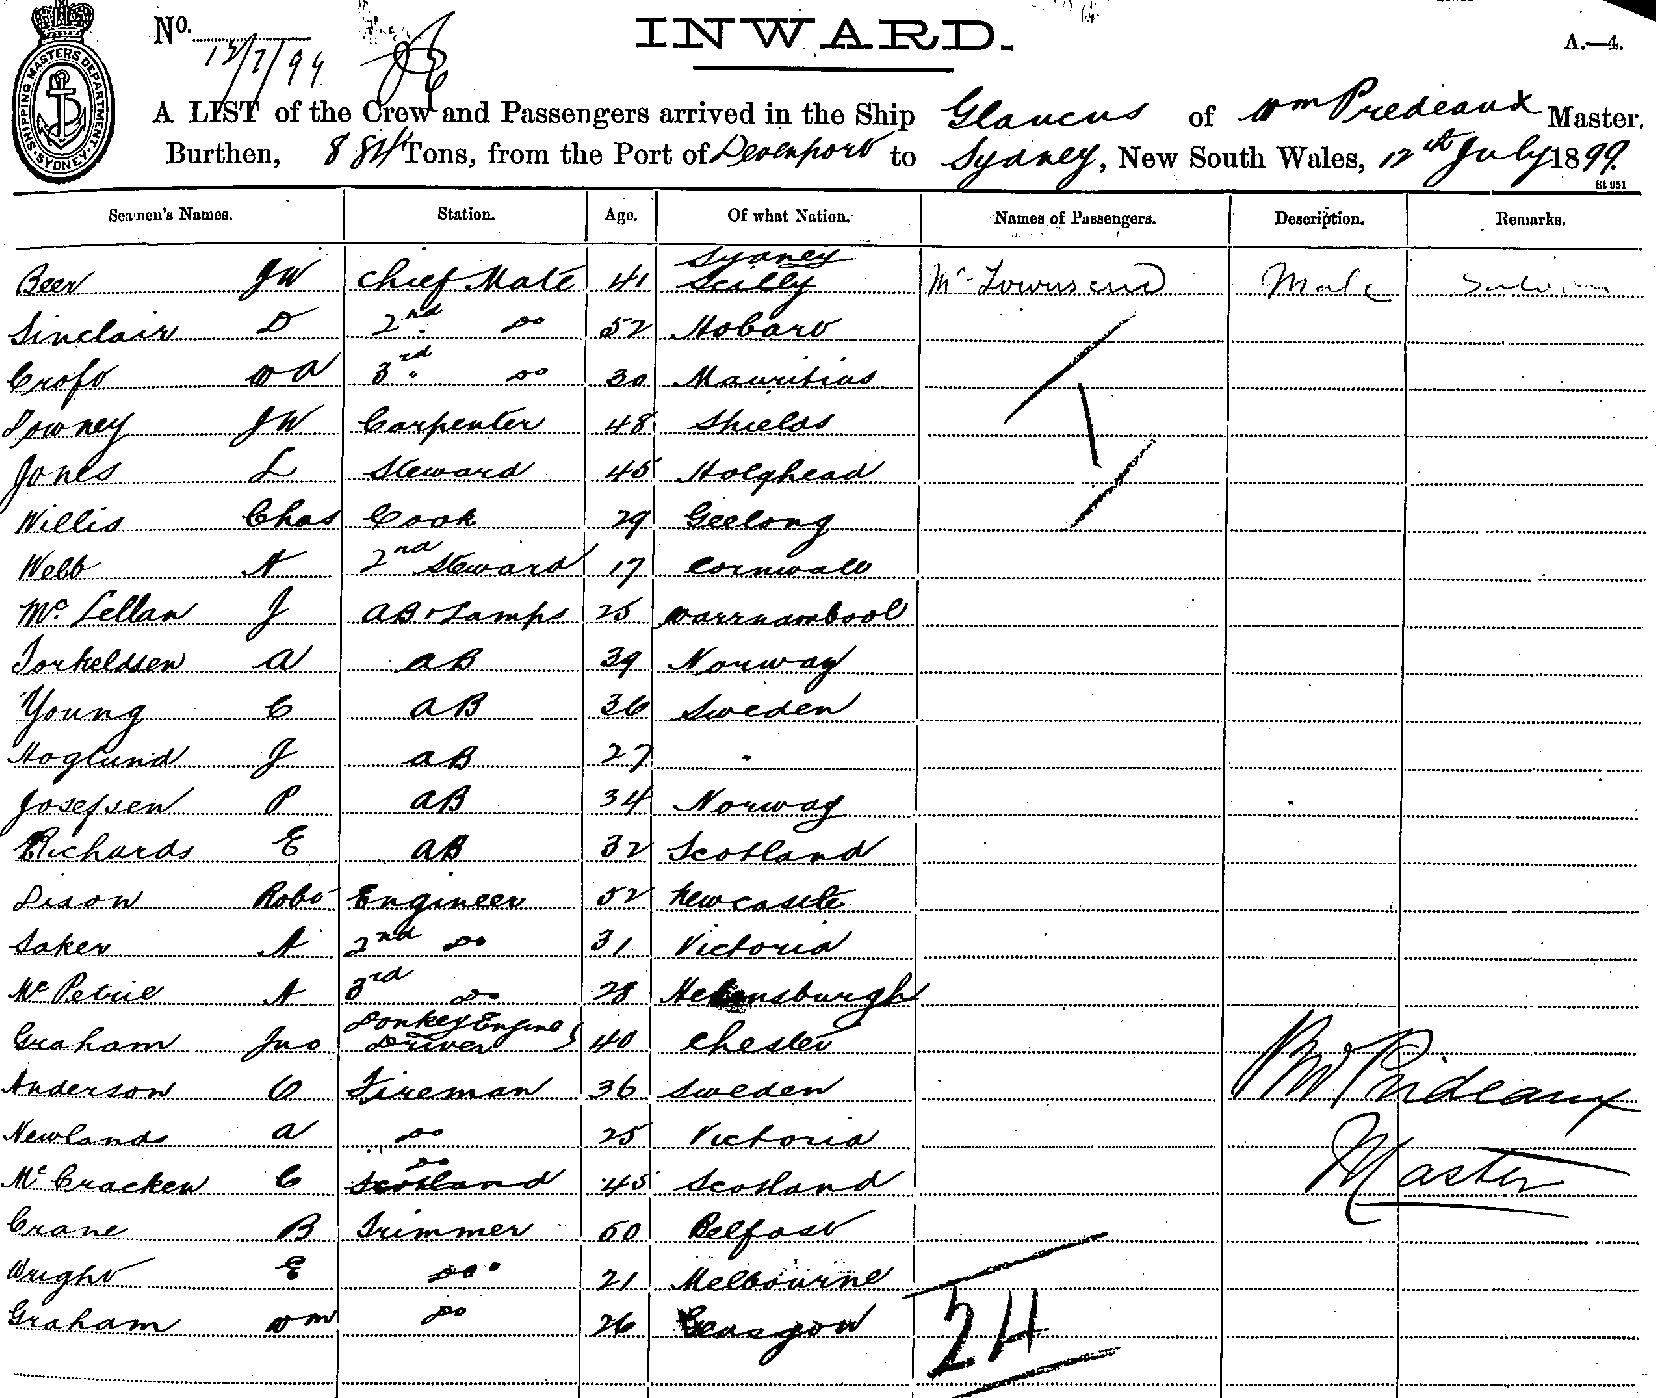 No. 13/7/99
INWARD.
A.—4.
SHIPPING MASTERS DEPARTMENT. SYDNEY.
A LIST of the Crew and Passengers arrived in the Ship Glaucus of Wm Predeaux Master.
Burthen, 884 Tons, from the Port of Devenport to Sydney, New South Wales, 12th July 1899.
St 951
Seamen's Names. Station. Age. Of what Nation. Names of Passengers. Description. Remarks.
Sydney
Beer JW Chief Mate 41 Scilly Mr Townsend Male
Sinclair D 2nd Do 52 Hobart
Croft WA 3rd Do 30 Mauritius
Downey JW Carpenter 48 Shields
Jones L Steward 45 Holyhead
Willis Chas Cook 29 Geelong
Webb A 2nd Steward 17 Cornwall
Mc Lellan J AB & Lamps 25 Warrnambool
Torkeldsen A AB 39 Norway
Young C AB 36 Sweden
Hoglund J AB 27 "
Josefsen P AB 34 Norway
Richards E AB 32 Scotland
Dixon Robt Engineer 52 Newcastle
Saker A 2nd Do 31 Victoria
Mc Petrie A 3rd Do 28 Helensburgh
Donkey Engine
Graham Jno Driver 40 Chester
Anderson C Fireman 36 Sweden
Newlands A Do 25 Victoria
Do
Mc Cracken C Scotland 45 Scotland
Crane B Trimmer 50 Belfast
Wright E Do 21 Melbourne
Graham Wm Do 26 Glasgow
Wm Prideaux
Master
24